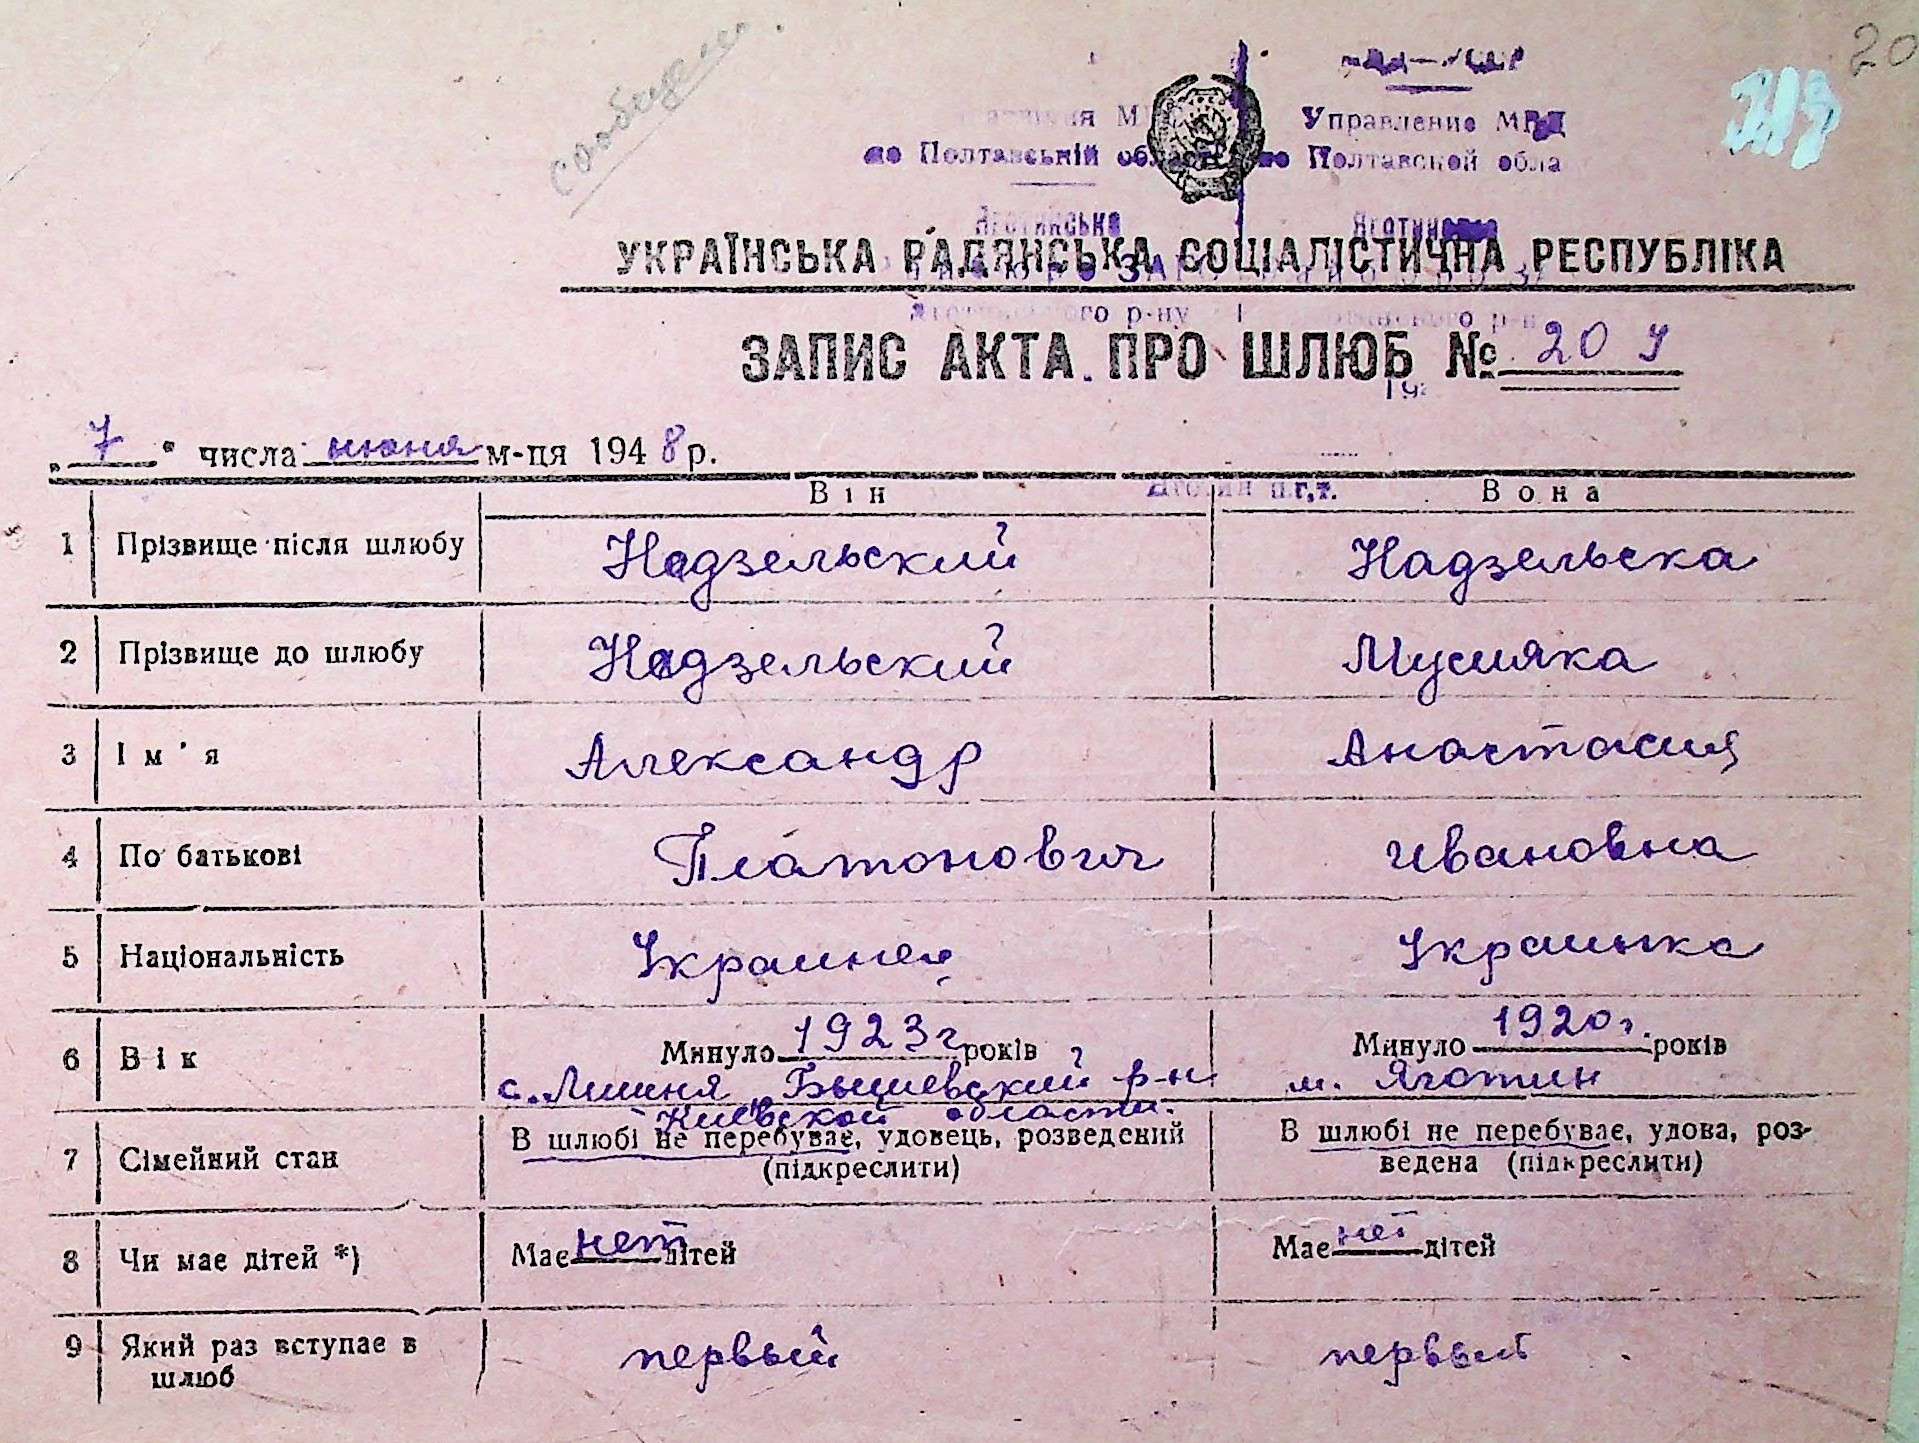 сообщен
20
Управление МВД
по Полтавській області по Полтавской обла
Яготинська Яготин
УКРАЇНСЬКА РАДЯНСЬКА СОЦІАЛІСТИЧНА РЕСПУБЛІКА
р-ну
ЗАПИС АКТА ПРО ШЛЮБ № 20 ч
„7" числа июня м-ця 1948 р.
Він Яготин п.г.т. Вона
1 Прізвище після шлюбу Надзельский Надзельска
2 Прізвище до шлюбу Надзельский Мусияка
3 Ім'я Александр Анастасия
4 По батькові Платонович Ивановна
5 Національність Украинец Украинка
6 Вік Минуло 1923 г. років Минуло 1920 г. років
с. Лишня Бышевский р-н м. Яготин
Киевской области.
7 Сімейний стан В шлюбі не перебуває, удовець, розведений (підкреслити) В шлюбі не перебуває, удова, розведена (підкреслити)
8 Чи має дітей *) Має нет дітей Має нет дітей
9 Який раз вступає в шлюб первый первый